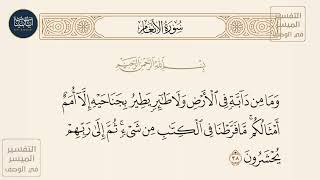 سورة الأنعام
التفسير
الميسر
في الوصف
بسم الله الرحمن الرحيم
وَمَا مِن دَآبَّةٖ فِي ٱلۡأَرۡضِ وَلَا طَٰٓئِرٖ يَطِيرُ بِجَنَاحَيۡهِ إِلَّآ أُمَمٌ
أَمۡثَالُكُمۚ مَّا فَرَّطۡنَا فِي ٱلۡكِتَٰبِ مِن شَيۡءٖۚ ثُمَّ إِلَىٰ رَبِّهِمۡ
يُحۡشَرُونَ ٣٨
التفسير
الميسر
في الوصف